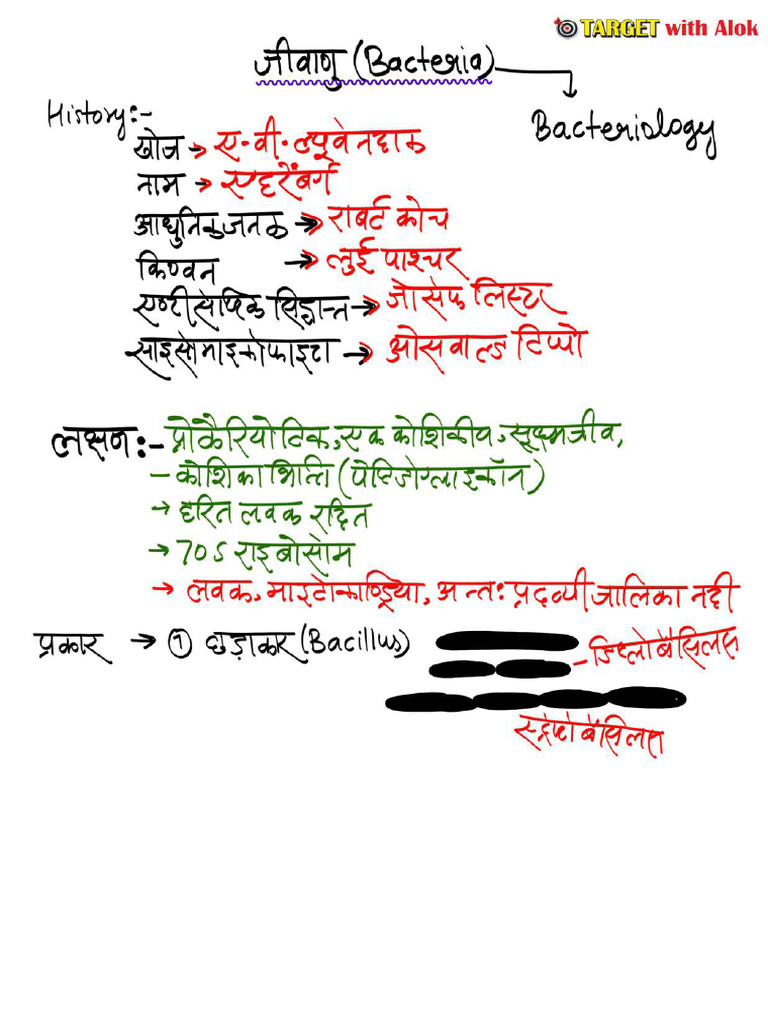 TARGET with Alok
जीवाणु (Bacteria)
Bacteriology
History:-
खोज → ए.वी. ल्यूवेनहाक
नाम → एहरेंबर्ग
आधुनिक जनक → राबर्ट कोच
किण्वन → लुई पाश्चर
एण्टीसेप्टिक सिद्धान्त → जोसेफ लिस्टर
साइजोमाइकोफाइटा → ओसवाल्ड टिप्पो
लक्षण:- प्रोकैरियोटिक, एक कोशिकीय, सूक्ष्मजीव,
- कोशिका भित्ति (पेप्टिडोग्लाइकॉन)
→ हरित लवक रहित
→ 70S राइबोसोम
→ लवक, माइटोकाण्ड्रिया, अन्तः प्रदव्यी जालिका नही
प्रकार → १ छड़ाकार (Bacillus)
- डिप्लोबैसिलस
स्ट्रेप्टोबैसिलस